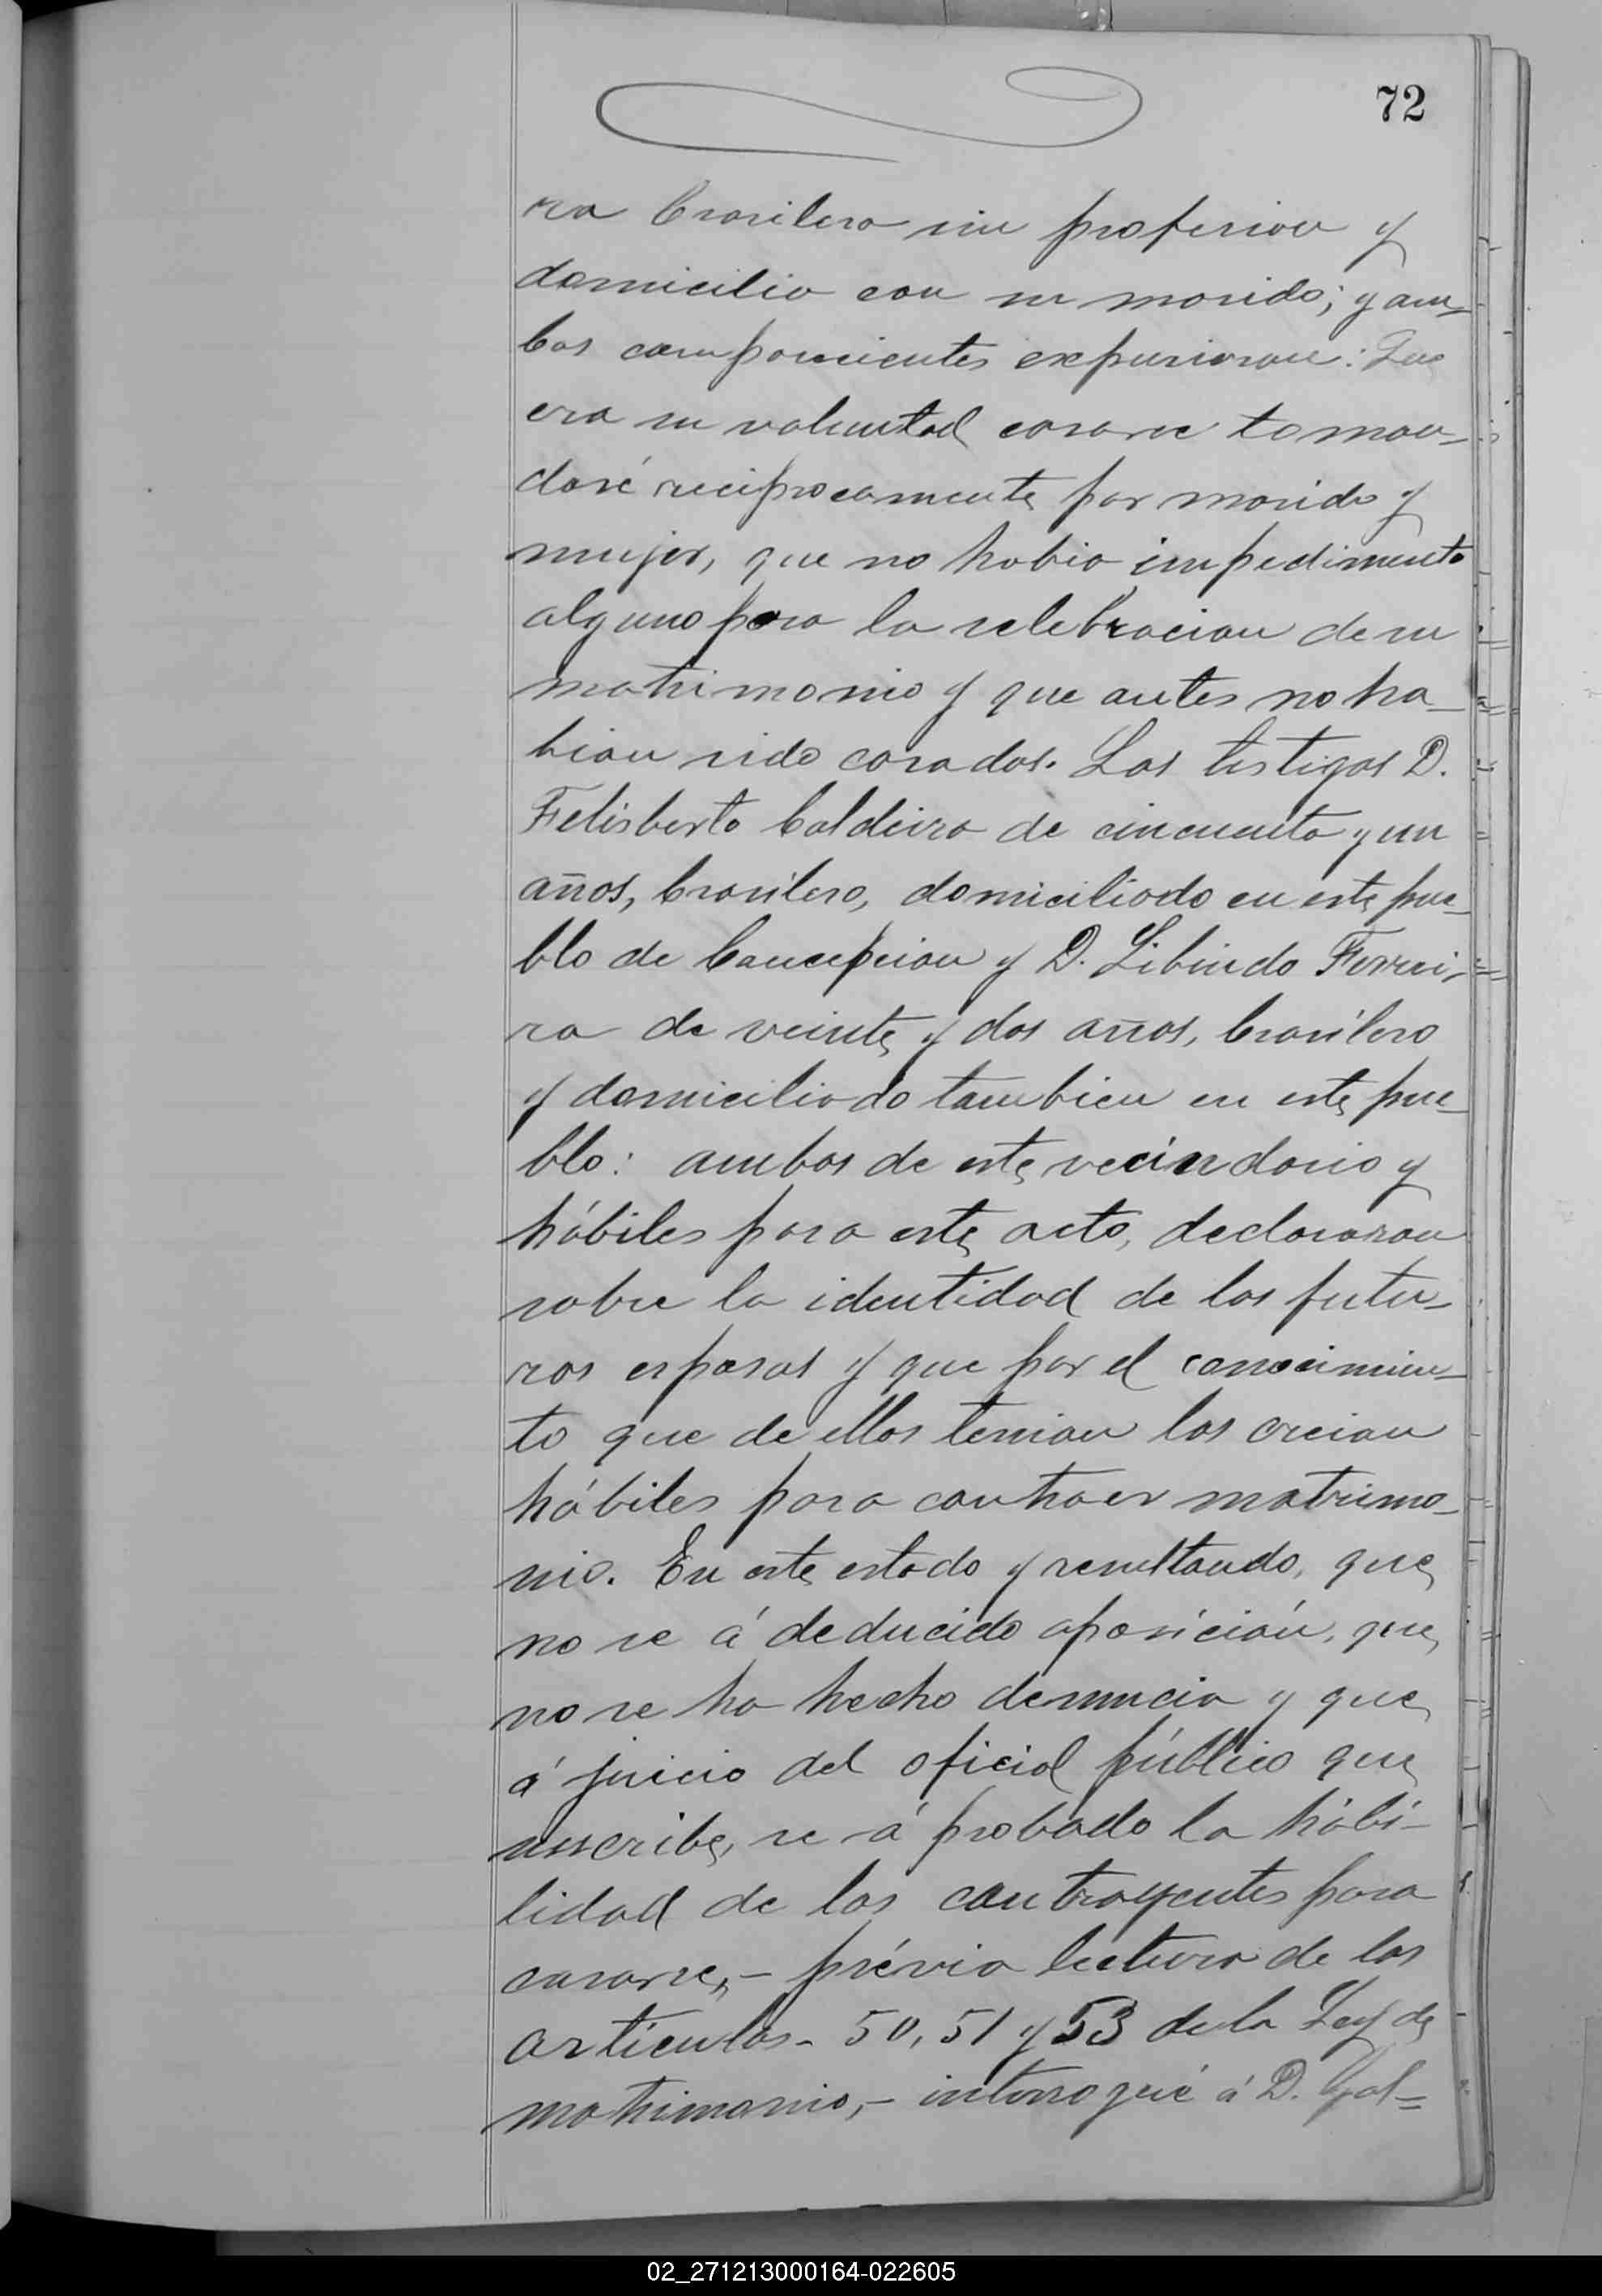 72
ra brasilera sin profesion y
domicilio con su marido; y am-
bos comparecientes expusieron: Que
era su voluntad casarse toman-
dosé reciprocamente por marido y
mujer, que no habia impedimento
alguno para la selebracion de su
matrimonio y que antes no ha-
bian sido casados. Los testigos D.
Felisberto Caldeira de cincuenta y un
años, brasilero, domiciliado en este pue-
blo de Concepcion y D. Libindo Ferrei-
ra de veinte y dos años, brasilero
y domiciliado tambien en este pue-
blo: ambos de este vecindario y
hábiles para este acto, declararon
sobre la identidad de los futu-
ros esposos y que por el conocimien-
to que de ellos tenian los creian
hábiles para contraer matrimo-
nio. En este estado y resultando, que
no se á deducido oposición, que
no se ha hecho denuncia y que
á juicio del oficial público que
suscribe, se á probado la habi-
lidad de los contrayentes para
casarse,- prévia lectura de los
articulos- 50, 51 y 53 de la Ley de
matrimonio,- interrogué á D. Gal=
02_271213000164-022605